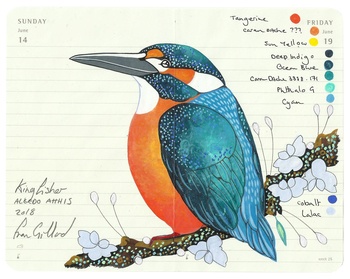 SUNDAY
June
14
Tangerine
caran dache ???
Sun Yellow
Deep Indigo
Ocean Blue
Caran Dache 3888.171
Phthalo G
Cyan
FRIDAY
June
19
Kingfisher
ALCEDO ATTHIS
2018
Fran Gillard
cobalt
Lilac